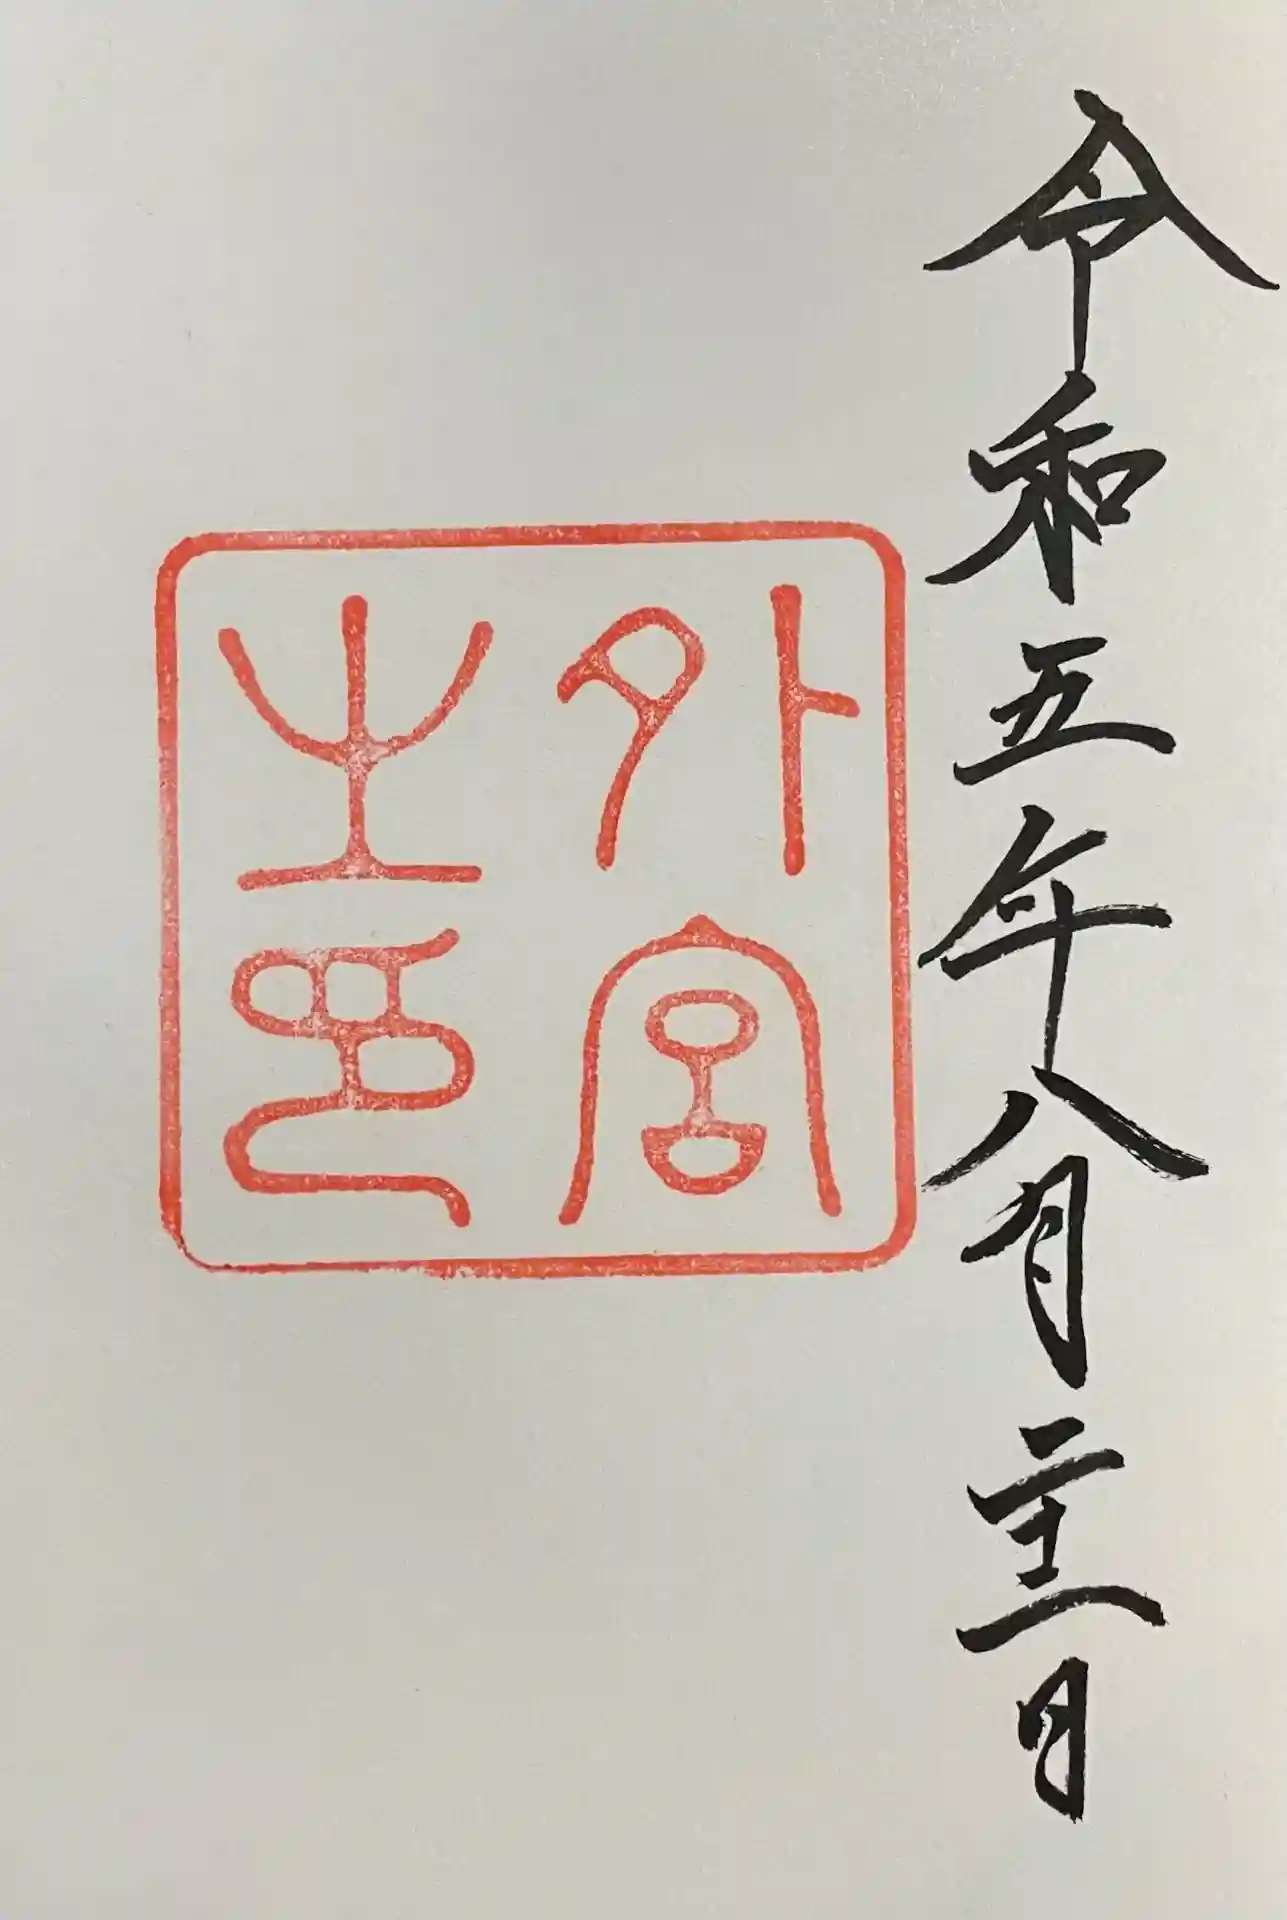 令和五年八月二十二日
外宮
之印